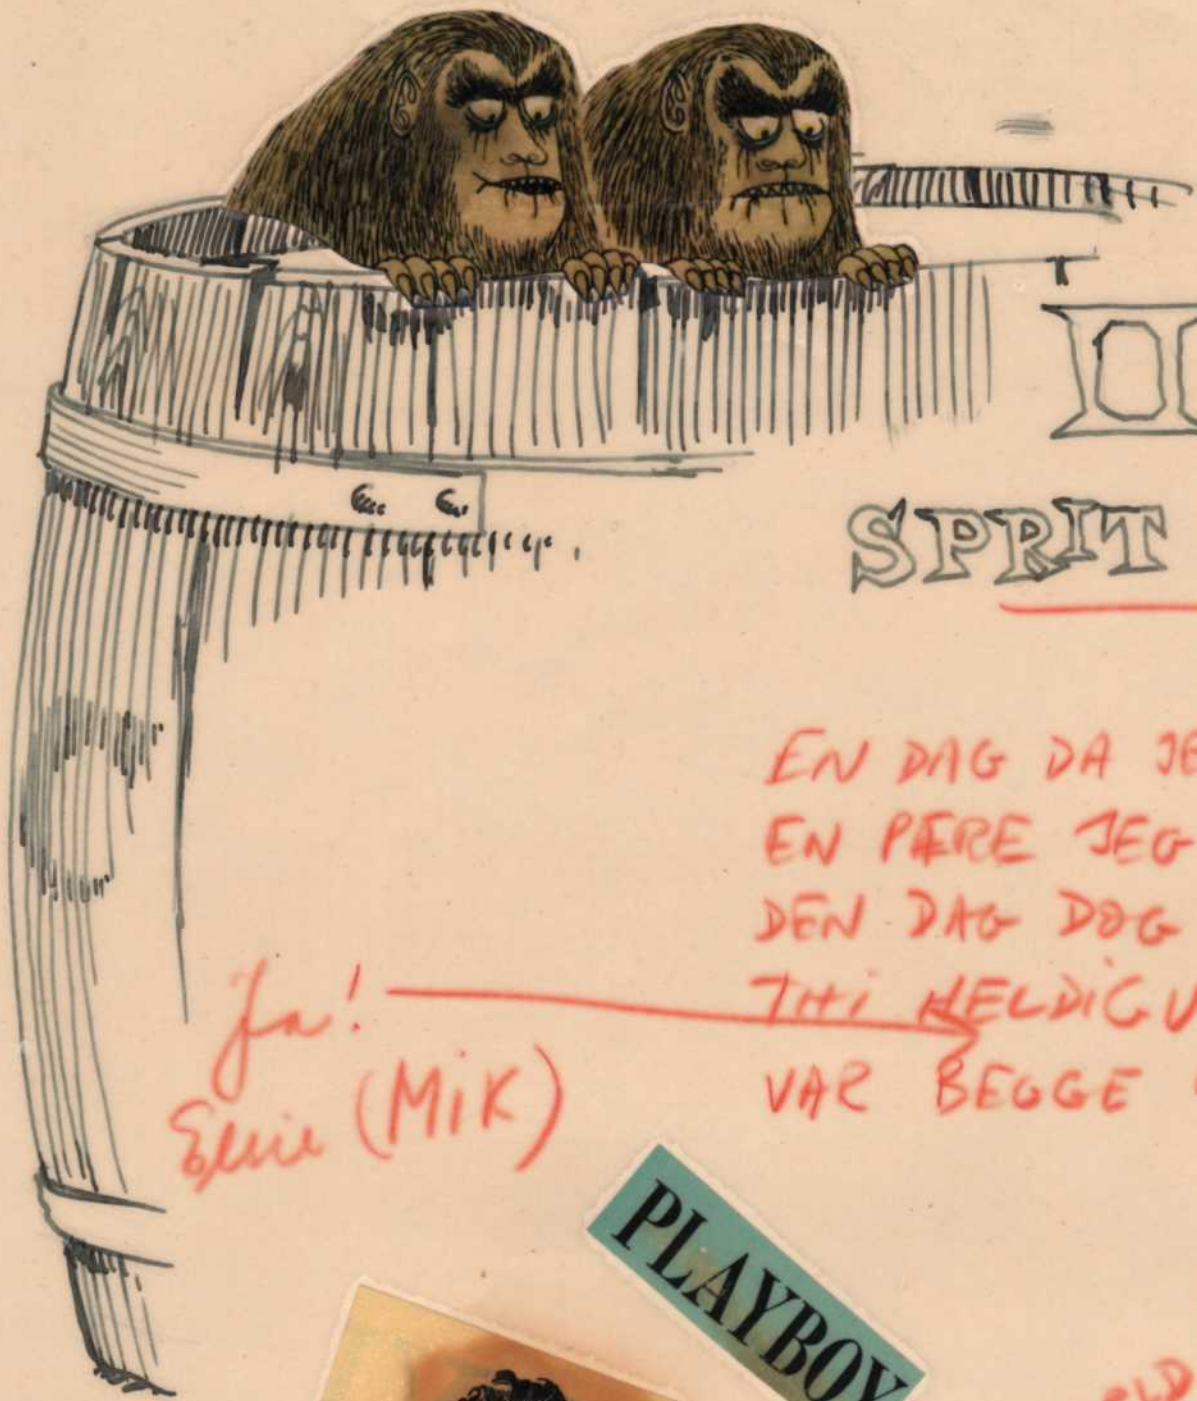 100
SPRIT
EN DAG DA JE
EN PÆRE JEG
DEN DAG DOG
THI HELDIGV
VAR BEGGE
Ja!
(MIK)
PLAYBOY